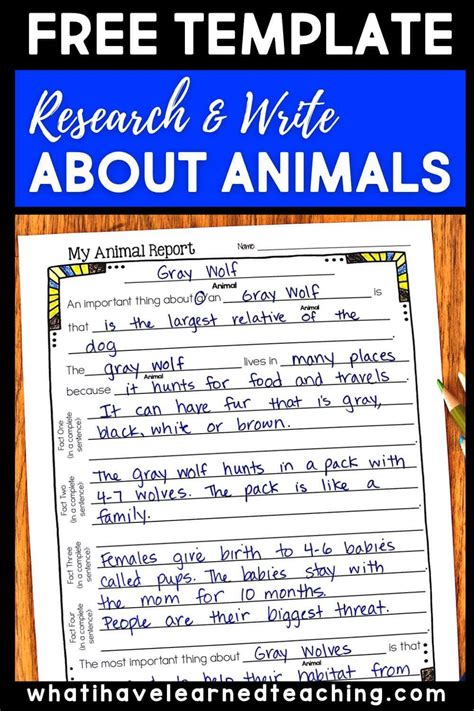 FREE TEMPLATE
Research & Write
ABOUT ANIMALS
My Animal Report Name:
Gray Wolf
Animal
An important thing about a/an Gray Wolf is
Animal
that is the largest relative of the
dog
The gray wolf lives in many places
Animal
because it hunts for food and travels.
Fact One
(in a complete
sentence)
It can have fur that is gray,
black, white or brown.
Fact Two
(in a complete
sentence)
The gray wolf hunts in a pack with
4-7 wolves. The pack is like a
family.
Fact Three
(in a complete
sentence)
Females give birth to 4-6 babies
called pups. The babies stay with
the mom for 10 months.
Fact Four
(in a complete
sentence)
People are their biggest threat.
The most important thing about Gray Wolves is that
help their habitat from
whatihavelearnedteaching.com